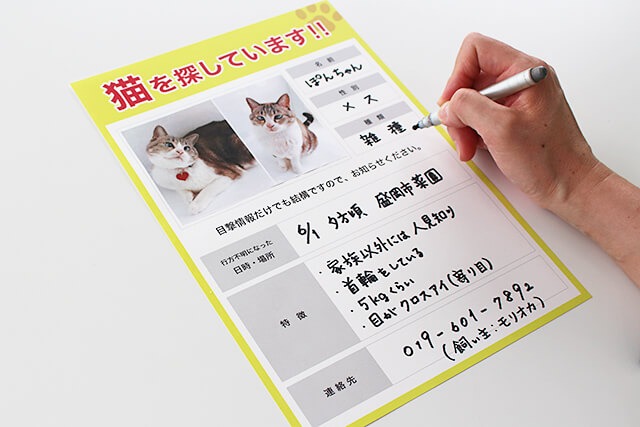 猫を探しています!!
名前
ぽんちゃん
性別
メス
種類
雑種
目撃情報だけでも結構ですので、お知らせください。
行方不明になった
日時・場所
6/1 夕方頃 盛岡市菜園
特徴
・家族以外には人見知り
・首輪をしている
・5kgくらい
・目がクロスアイ(寄り目)
連絡先
019-601-7892
(飼い主:モリオカ)